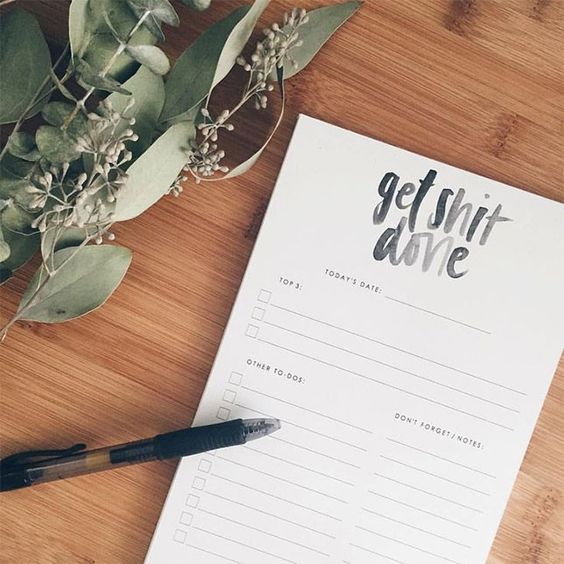 get shit
done
TODAY'S DATE:
TOP 3:
OTHER TO-DOS:
DON'T FORGET / NOTES: